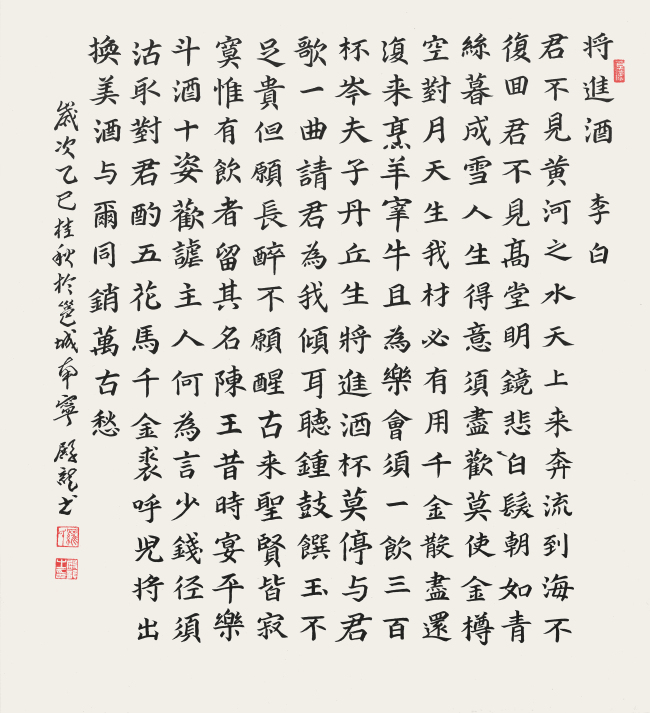 将進酒 李白
君不見黄河之水天上来奔流到海不
復回君不見髙堂明鏡悲白髮朝如青
絲暮成雪人生得意須盡歡莫使金樽
空對月天生我材必有用千金散盡還
復来烹羊宰牛且為樂會須一飲三百
杯岑夫子丹丘生將進酒杯莫停与君
歌一曲請君為我傾耳聴鍾鼓饌玉不
足貴但願長醉不願醒古来聖賢皆寂
寞惟有飲者留其名陳王昔時宴平樂
斗酒十姿歡謔主人何為言少錢径須
沽取對君酌五花馬千金裘呼児将出
換美酒与爾同銷萬古愁
歲次乙巳桂秋於邕城南寧 殿龍书